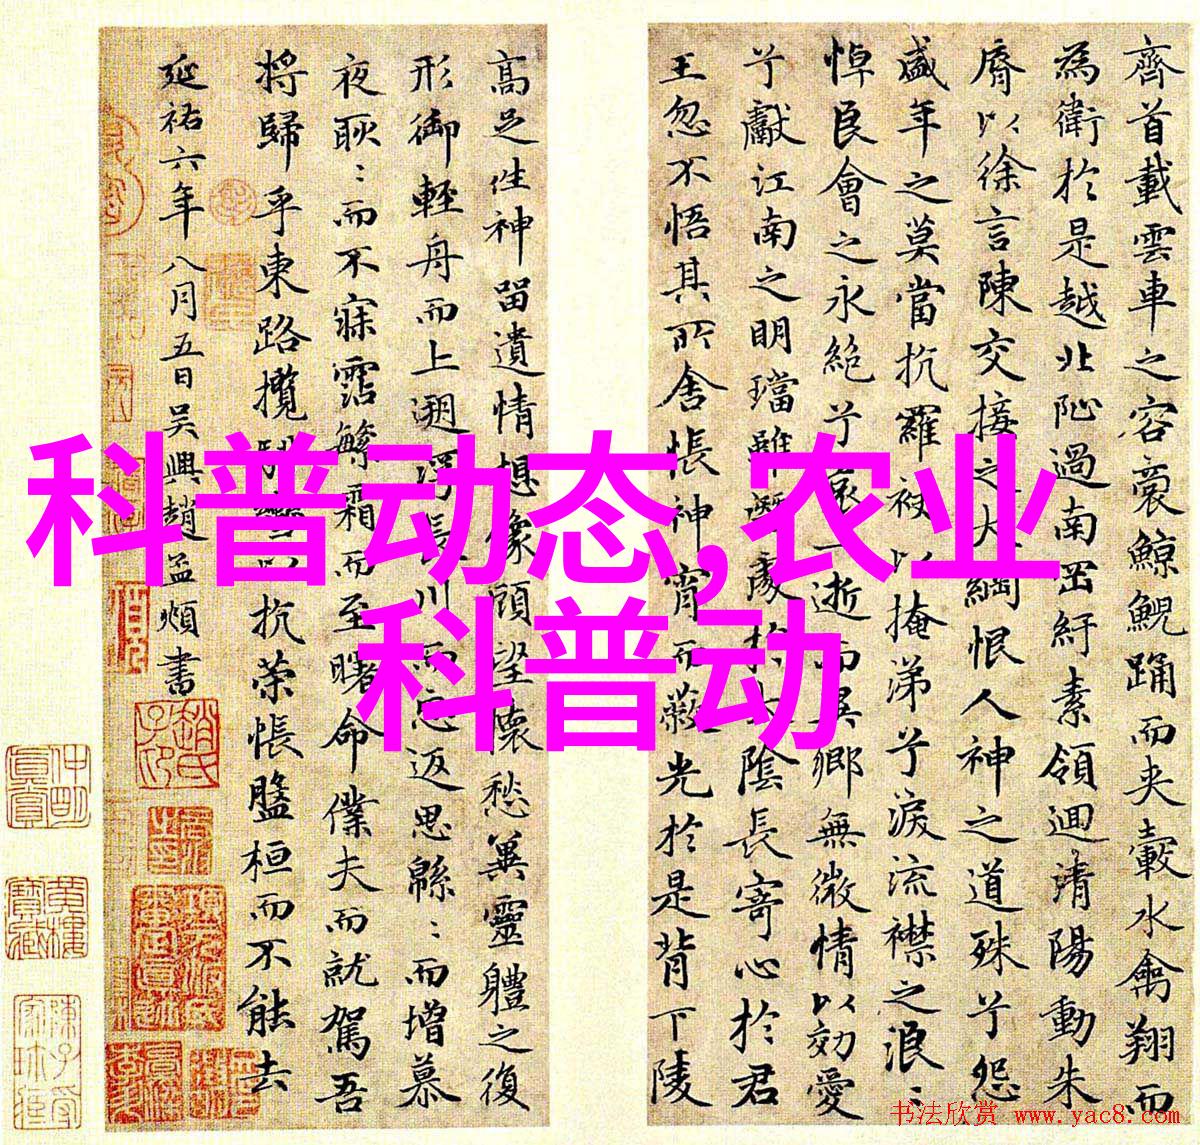 齊首載雲車之容裔鯨鯢踊而夾轂水禽翔而
為衛於是越北沚過南罡紆素領迴清陽動朱
脣以徐言陳交接之大綱恨人神之道殊兮怨
盛年之莫當抗羅袂以掩涕兮淚流襟之浪〻
悼良會之永絕兮哀一逝而異鄉無微情以効愛
兮獻江南之明璫雖潛處於太陰長寄心於君
王忽不悟其所舍悵神宵而蔽光於是背下陵
高足往神留遺情想像顧望懷愁兾靈體之復
形御輕舟而上遡浮長川而忘返思緜〻而增慕
夜耿〻而不寐霑繁霜而至曙命僕夫而就駕吾
將歸乎東路攬騑轡以抗策悵盤桓而不能去
延祐六年八月五日吳興趙孟頫書
科普动态,农业
科普动
书法欣赏 www.yac8.com